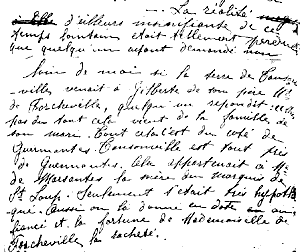 La réalité
Elle d'ailleurs insouciante de ce
temps lointain était tellement perdue
que quelqu'un ayant demandé
loin de moi si la terre de Tanson
-ville venait à Gilberte de son père Mr
de Forcheville, quelqu'un répondit :
pas du tout cela vient de la famille de
son mari. Tout cela c'est du côté de
Guermantes. Tansonville est tout près
de Guermantes. Elle appartenait à Me
de Marsantes la mère du marquis de
St Loup. Seulement c'était très hypothé
qué. Aussi on l'a donné en dot au
fiancé et la fortune de Mademoiselle de
Forcheville l'a racheté.